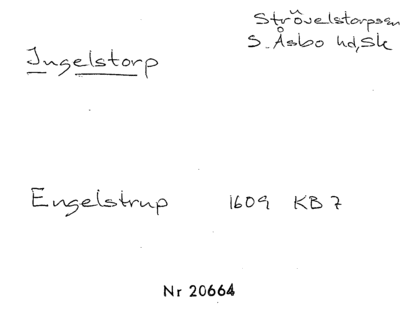 Strövelstorpssn
S. Åsbo hd, Sk
Ingelstorp
Engelstrup 1609 KB 7
Nr 20664